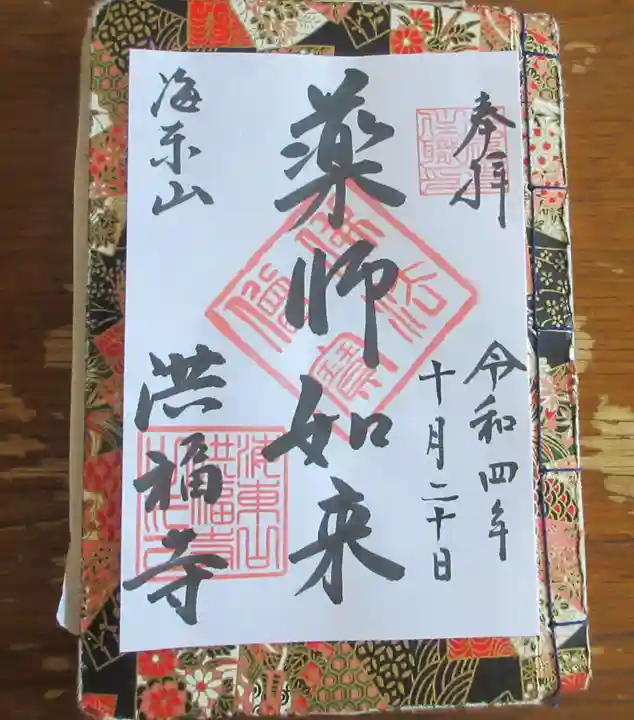 奉拝
令和四年
十月二十日
薬師如来
海東山
洪福寺
佛法僧寳
海東山
洪福寺